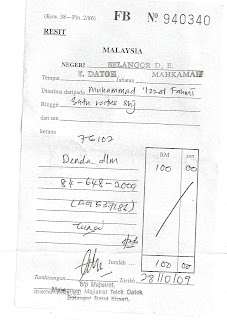 (Kew. 38—Pin. 2/86) FB Nº 940340
RESIT
MALAYSIA
NEGERI SELANGOR D. E.
Tempat T. DATOK Jabatan MAHKAMAH
Diterima daripada Muhammad 'Izzat Fahmi
Ringgit Satu ratus shj
dan sen
kerana
76102
RM sen
Denda dlm 100 00
84-648-2009
Tunai
Jumlah ... 100 00
Tandatangan Tarikh 28/10/09
b/p Majistret,
Mahkamah Majistret Telok Datok,